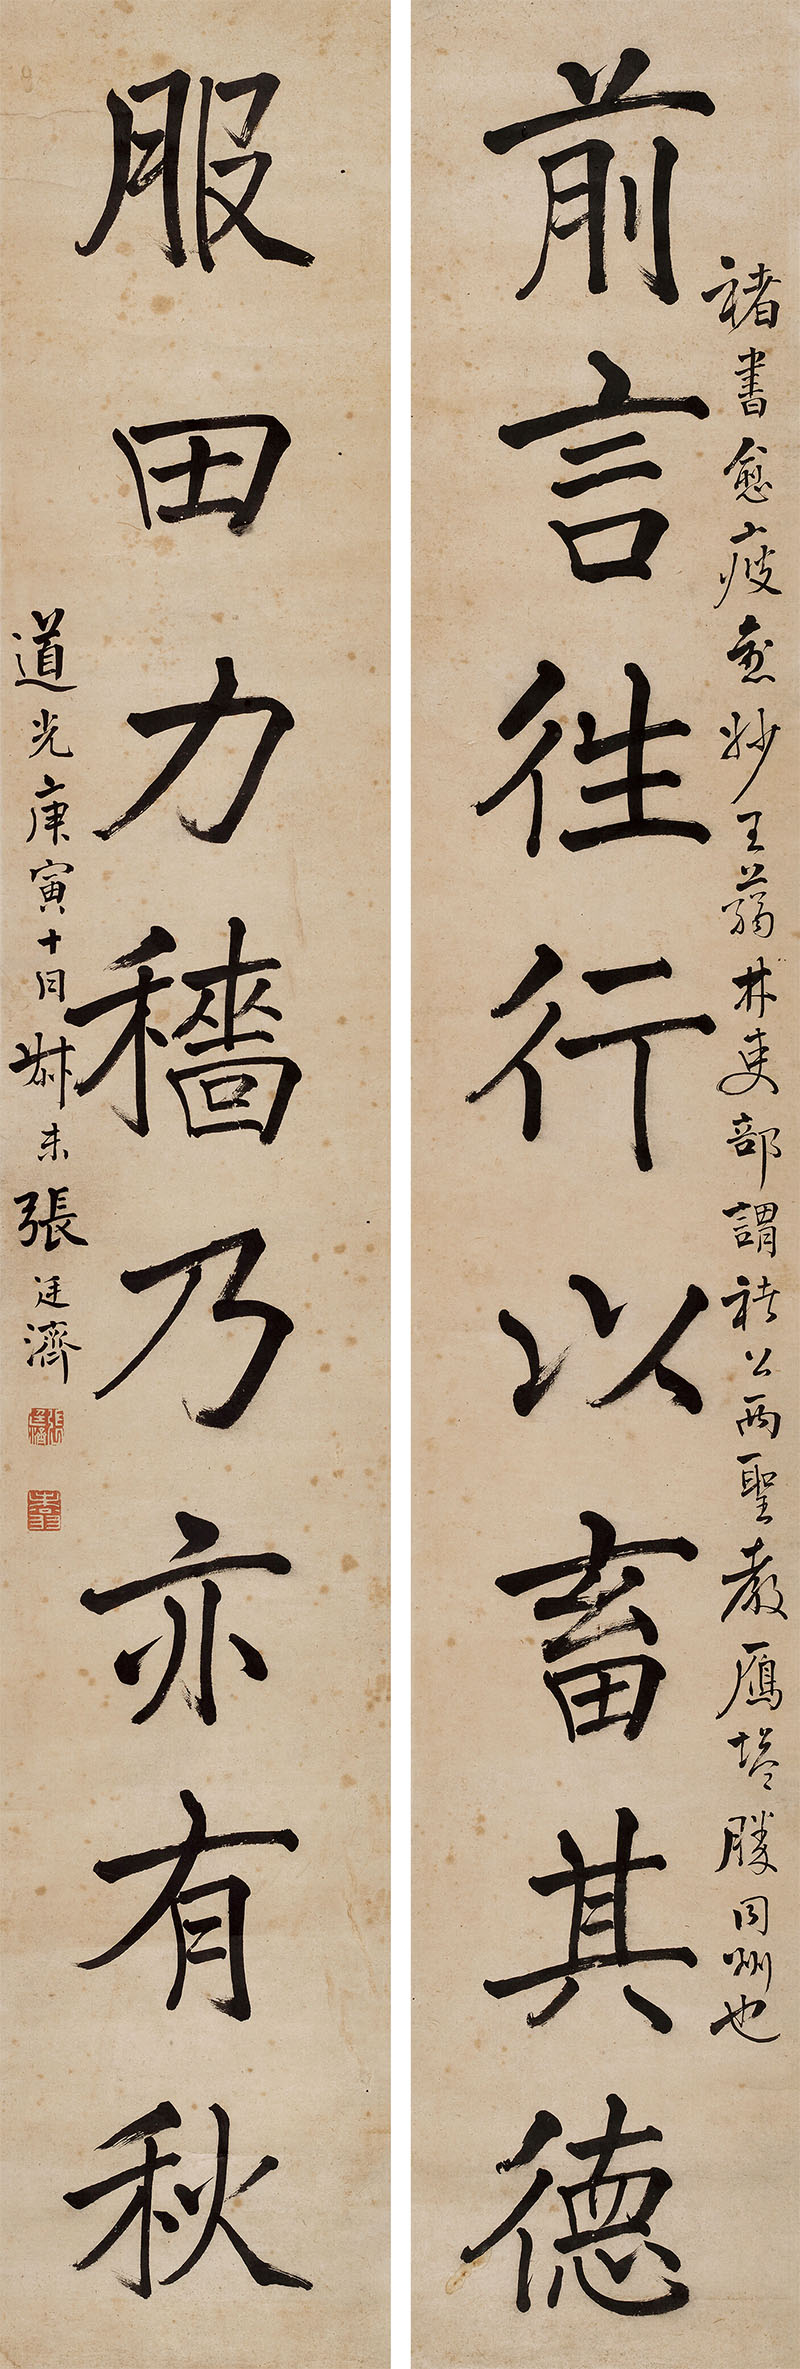 前言往行以畜其德
褚書愈瘦愈妙王蒻林吏部謂褚公兩聖教雁塔勝同州也
服田力穡乃亦有秋
道光庚寅十月尗未張廷濟
張廷濟